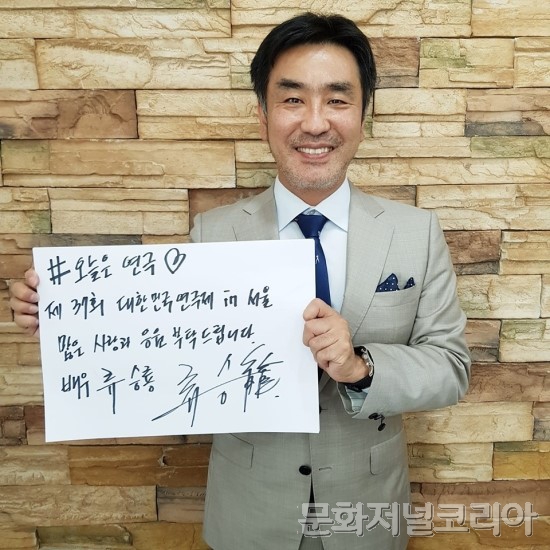 #오늘은 연극♡
제 37회 대한민국연극제 in 서울
많은 사랑과 응원 부탁드립니다
배우 류승룡 류승龍
문화저널코리아